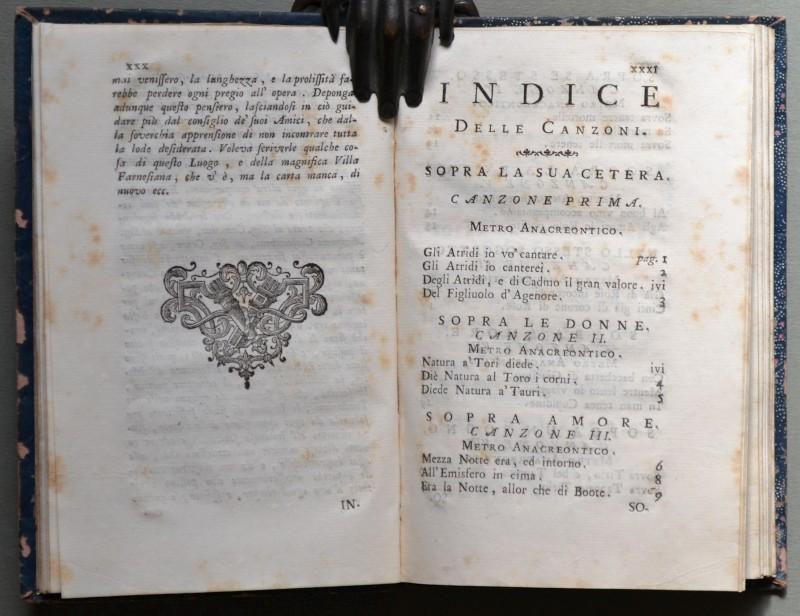 XXX
mai venissero, la lunghezza, e la prolissità fa-
rebbe perdere ogni pregio all' opera. Deponga
adunque questo pensiero, lasciandosi in ciò gui-
dare più dal consiglio de' suoi Amici, che dal-
la soverchia apprensione di non incontrare tutta
la lode desiderata. Voleva scriverle qualche co-
sa di questo Luogo, e della magnifica Villa
Farnesiana, che v' è, ma la carta manca, di
nuovo ecc.
IN-
XXXI
INDICE
DELLE CANZONI.
SOPRA LA SUA CETERA.
CANZONE PRIMA.
METRO ANACREONTICO.
Gli Atridi io vo' cantare. pag. 1
Gli Atridi io canterei. 2
Degli Atridi, e di Cadmo il gran valore. ivi
Del Figliuolo d' Agenore. 3
SOPRA LE DONNE.
CANZONE II.
METRO ANACREONTICO.
Natura a' Tori diede. ivi
Diè Natura al Toro i corni. 4
Diede Natura a' Tauri. 5
SOPRA AMORE.
CANZONE III.
METRO ANACREONTICO.
Mezza Notte era, ed intorno. 6
All' Emisfero in cima. 8
Era la Notte, allor che di Boote. 9
SO-